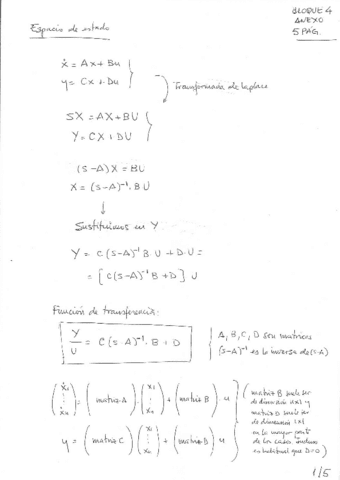 BLOQUE 4
ANEXO
5 PÁG.
Espacio de estado
ẋ = Ax + Bu
y = Cx + Du
Transformada de Laplace
SX = AX + BU
Y = CX + DU
(s-A)X = BU
X = (s-A)⁻¹·BU
Sustituimos en Y
Y = C(s-A)⁻¹BU + D·U =
= [C(s-A)⁻¹B + D] U
Función de transferencia:
Y/U = C(s-A)⁻¹·B + D
A, B, C, D son matrices
(s-A)⁻¹ es la inversa de (s-A)
(ẋ₁ ⋮ ẋₙ) = (matriz A)·(x₁ ⋮ xₙ) + (matriz B)·u
y = (matriz C)(x₁ ⋮ xₙ) + (matriz D)·u
(matriz B suele ser
de dimensión nx1 y
matriz D suele ser
de dimensión 1x1
en la mayor parte
de los casos incluso
es habitual que D=0)
1/5